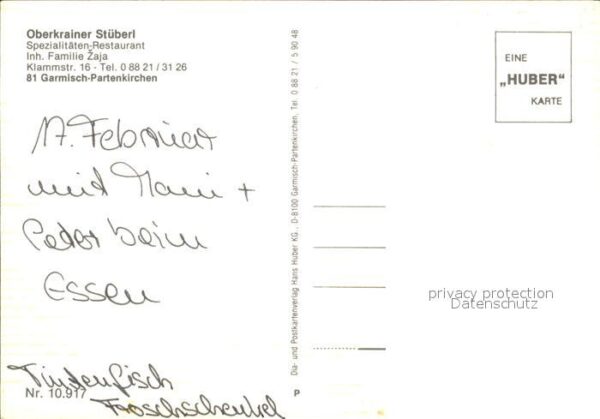 Oberkrainer Stüberl
Spezialitäten-Restaurant
Inh. Familie Žaja
Klammstr. 16 - Tel. 0 88 21 / 31 26
81 Garmisch-Partenkirchen
17. Februar
mit Mani +
Peter beim
Essen
Tintenfisch
Froschschenkel
Nr. 10.917
Dia- und Postkartenverlag Hans Huber KG., D-8100 Garmisch-Partenkirchen, Tel. 0 88 21 / 5 90 48
P
EINE
„HUBER"
KARTE
privacy protection
Datenschutz